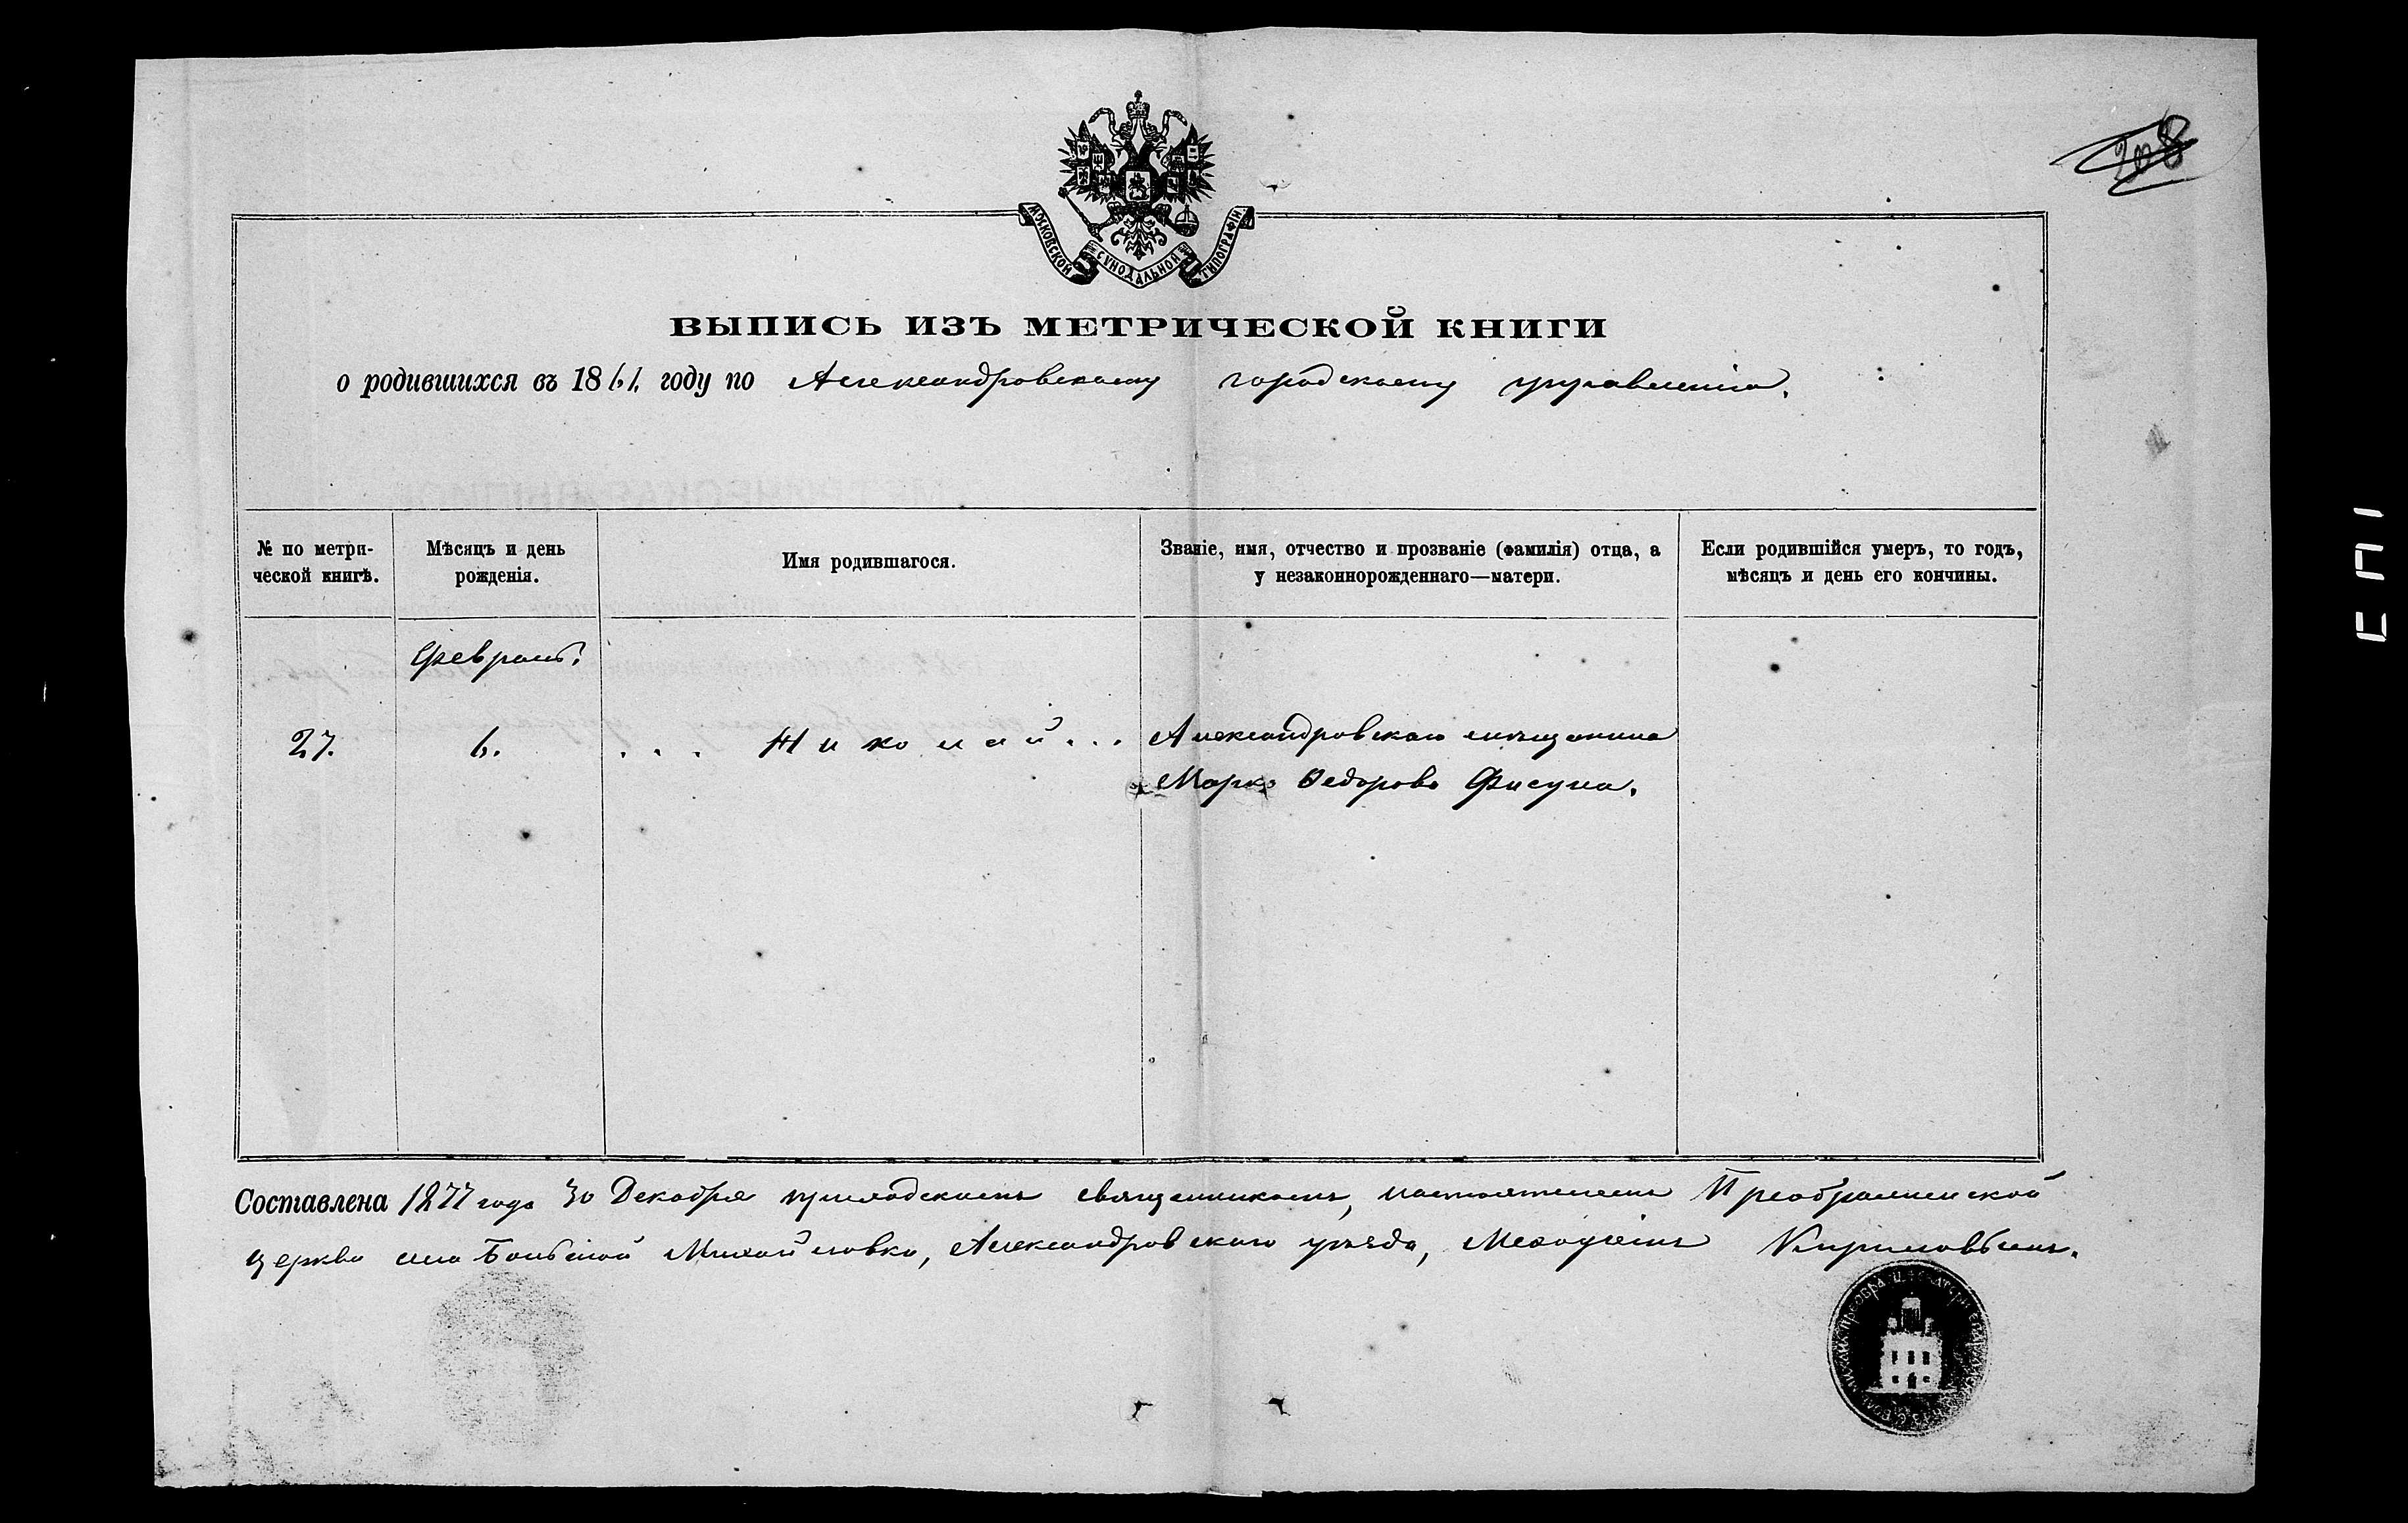 208
МОСКОВСКОЙ СѴНОДАЛЬНОЙ ТИПОГРАФІИ.
ВЫПИСЬ ИЗЪ МЕТРИЧЕСКОЙ КНИГИ
о родившихся въ 1861. году по Александровскому городскому управленію.
№ по метрической книгѣ.
Мѣсяцъ и день рожденія.
Имя родившагося.
Званіе, имя, отчество и прозваніе (фамилія) отца, а у незаконнорожденнаго—матери.
Если родившійся умеръ, то годъ, мѣсяцъ и день его кончины.
Февраль.
27. 6. . . . Николай . . . Александровскаго мѣщанина
Марка Ѳедорова Фисуна.
Составлена 1877 года 30 Декабря приходскимъ священникомъ, настоятелемъ Преображенской
церкви села Больѣшой Михайловки, Александровскаго уѣзда, Меѳодіемъ